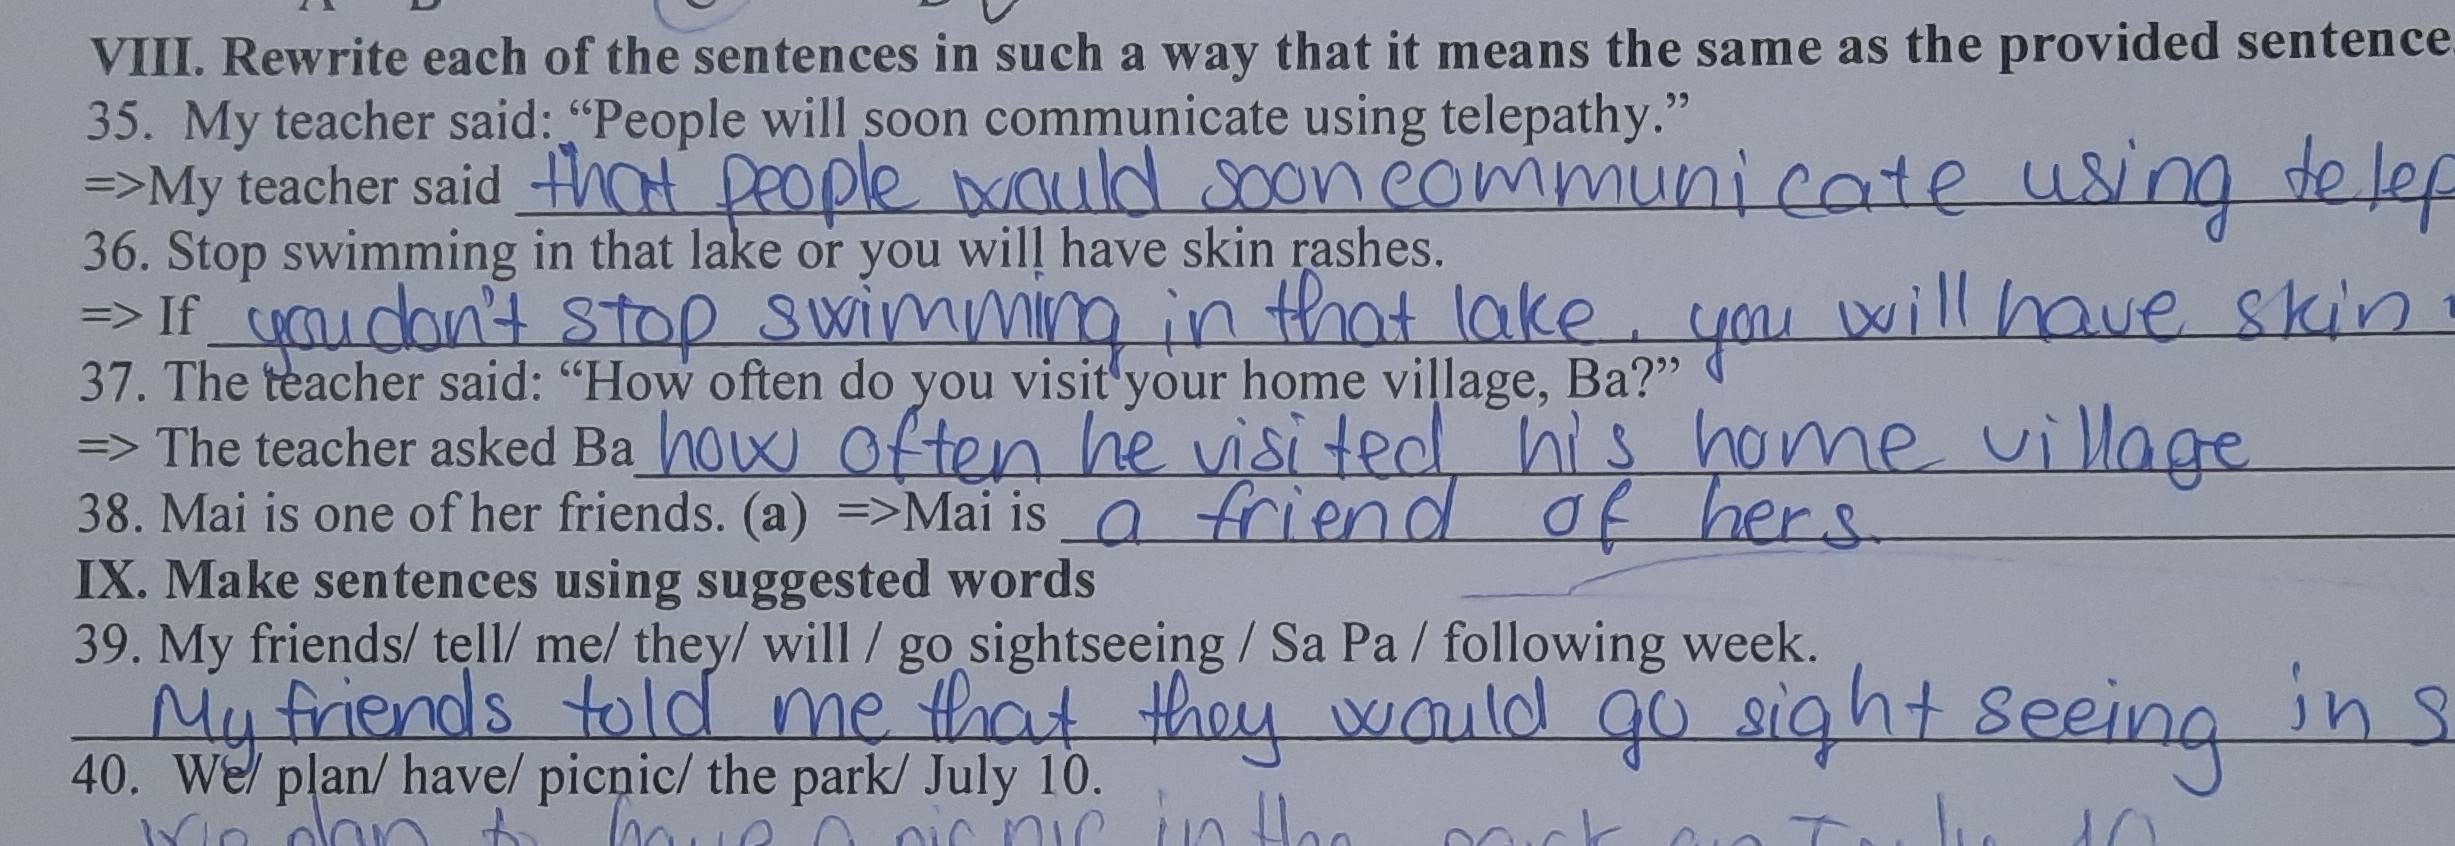 VIII. Rewrite each of the sentences in such a way that it means the same as the provided sentence
35. My teacher said: “People will soon communicate using telepathy.”
=>My teacher said that people would soon communicate using telep
36. Stop swimming in that lake or you will have skin rashes.
=> If you don't stop swimming in that lake, you will have skin
37. The teacher said: “How often do you visit your home village, Ba?”
=> The teacher asked Ba how often he visited his home village
38. Mai is one of her friends. (a) =>Mai is a friend of hers.
IX. Make sentences using suggested words
39. My friends/ tell/ me/ they/ will / go sightseeing / Sa Pa / following week.
My friends told me that they would go sightseeing in S
40. We/ plan/ have/ picnic/ the park/ July 10.
We plan to have a picnic in the park on July 10